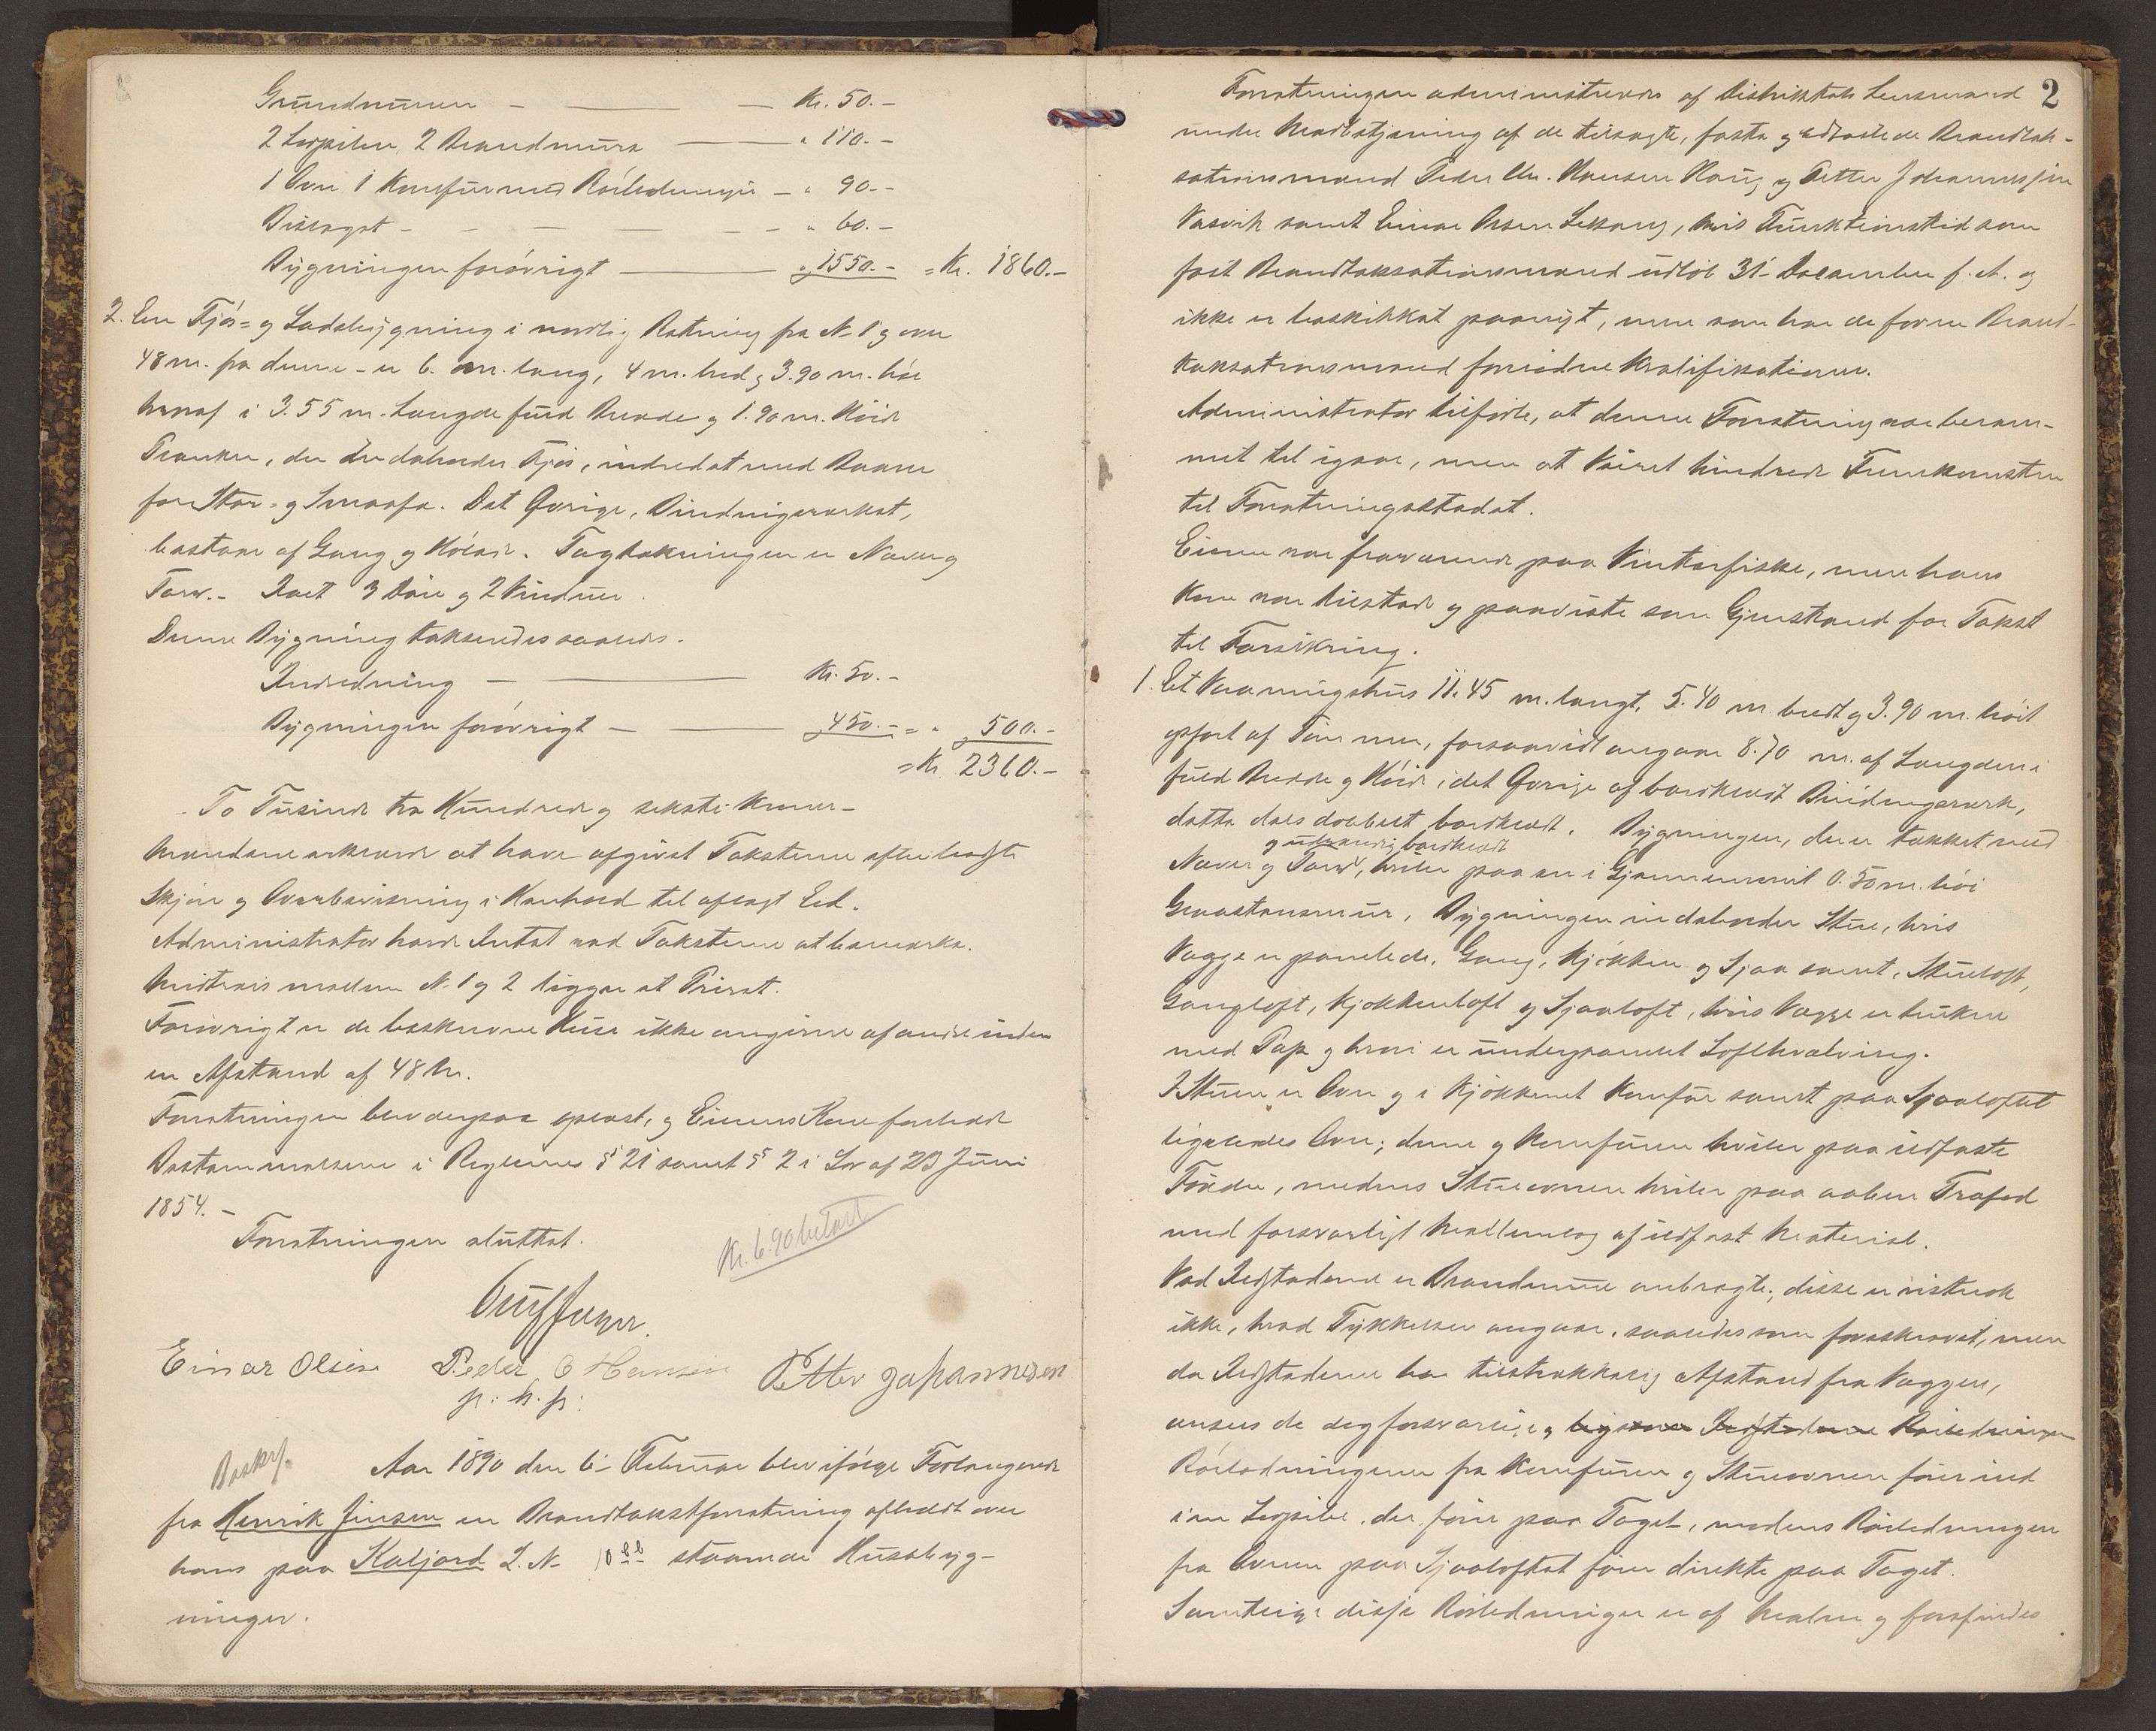 Grundmuren - — — Kr. 50.-
2 Løbpiber, 2 Brandmure — — " 110.-
1 Ovn 1 Komfur med Rørledninger — " 90.-
Bislaget - - — — - - " 60.-
Bygningen forøvrigt — — " 1550.- = Kr. 1860.-
2. En Fjøs- og Ladebygning i nordlig Retning fra No 1 og over
48 m. fra denne - er 6. m. lang, 4 m. bred og 3.90 m. høi
hvoraf i 3.55 m. Længde fuld Bredde og 1.90 m. Høide
Tømmer, der indeholder Fjøs, indredet med Baase
for Stor- og Smaafæ. Det Øvrige, Bindingsverket,
bestaar af Gang og Hølade. Tagtækningen er Næver og
Torv. - Iøvet 3 Døre og 2 Vinduer.
Denne Bygning takseredes saaledes.
Indredning — — Kr. 50.-
Bygningen forøvrigt — — " 450.- = " 500.-
= Kr. 2360.-
- To Tusinde tre Hundrede og seksti Kroner -
Mændene erklærede at have afgivet Taksterne efter bedste
Skjøn og Overbevisning i Henhold til aflagt Ed.
Administrator havde Intet ved Taksterne at bemærke.
Midtveis mellem No 1 og 2 ligger et Privet.
Forøvrigt er de beskrevne Huse ikke omgivne af andre inden
en Afstand af 48 M.
Forretningen blev derpaa oplæst, og Eierens Kone foreholdt
Bestemmelserne i Reglernes § 21 samt § 2 i Lov af 23 Juni
1854. -
Forretningen sluttet.
Kr. 6.90 betalt
Einar Olsen Peder O Hansen Petter Johannesen
p: h. p:
Beskr.
Aar 1890 den 6- Februar blev ifølge Forlangende
fra Henrik Jensen en Brandtakstforretning afholdt over
hans paa Kaljord L. No 10 bb staaende Husebyg-
ninger.
2
Forretningen administreres af Distriktets Lensmand
under Medbetjening af de tilsagte, faste og edfæstede Brandtak-
sationsmænd Peder Chr. Hansen Haug og Petter Johannessen
Vasvik samt Einar Olsen Leksang, hvis Funktionstid som
fast Brandtaksationsmand udløb 31- December f. A. og
ikke er beskikket paanyt, men som har de for en Brand-
taksationsmand fornødne Kvalifikationer.
Administrator tilførte, at denne Forretning var beram-
met til igaar, men at Veiret hindrede Fremkomsten
til Forretningsstedet.
Eieren var fraværende paa Vinterfiske, men hans
Kone var tilstede og paaviste som Gjenstand for Takst
til Forsikring.
1. Et Vaaningshus 11.45 m. langt, 5.40 m. bredt og 3.90 m. høit
opført af Tømmer, forsaavidt angaar 8.70 m. af Længden i
fuld Bredde og Høide, i det Øvrige af bordklædt Bindingsverk,
dette dels dobbelt bordklædt. Bygningen, der er tækket med
og udvendig bordklædt
Næver og Torv, hviler paa en i Gjennemsnit 0.50 m. høi
Graastensmur. Bygningen indeholder Stue, hvis
Vægge er panelede, Gang, Kjøkken og Sjaa samt, Stueloft,
Gangloft, Kjøkkenloft og Sjaaloft, hvis Vægge er trukne
med Pap og hvori er underpanelet Lofthvælving.
I Stuen er Ovn og i Kjøkkenet Komfur samt paa Sjaaloftet
ligeledes Ovn; denne og Komfuren hviler paa ildfaste
Fødder, medens Stueovnen hviler paa aaben Træfod
med forsvarligt Mellemlæg af ildfast Materiel.
Ved Ildstederne er Brandmure anbragte; disse er vistnok
ikke, hvad Tykkelsen angaar, saaledes som foreskrevet, men
da Ildstederne har tilstrækkelig Afstand fra Væggen,
ansees de dog forsvarlige, Ildstederne Rørledningen
Rørledningerne fra Komfuren og Stueovnen fører ind
i en Løbpibe, der fører paa Taget, medens Rørledningen
fra Ovnen paa Sjaaloftet fører direkte paa Taget.
Samtlige disse Rørledninger er af Malm og forefindes